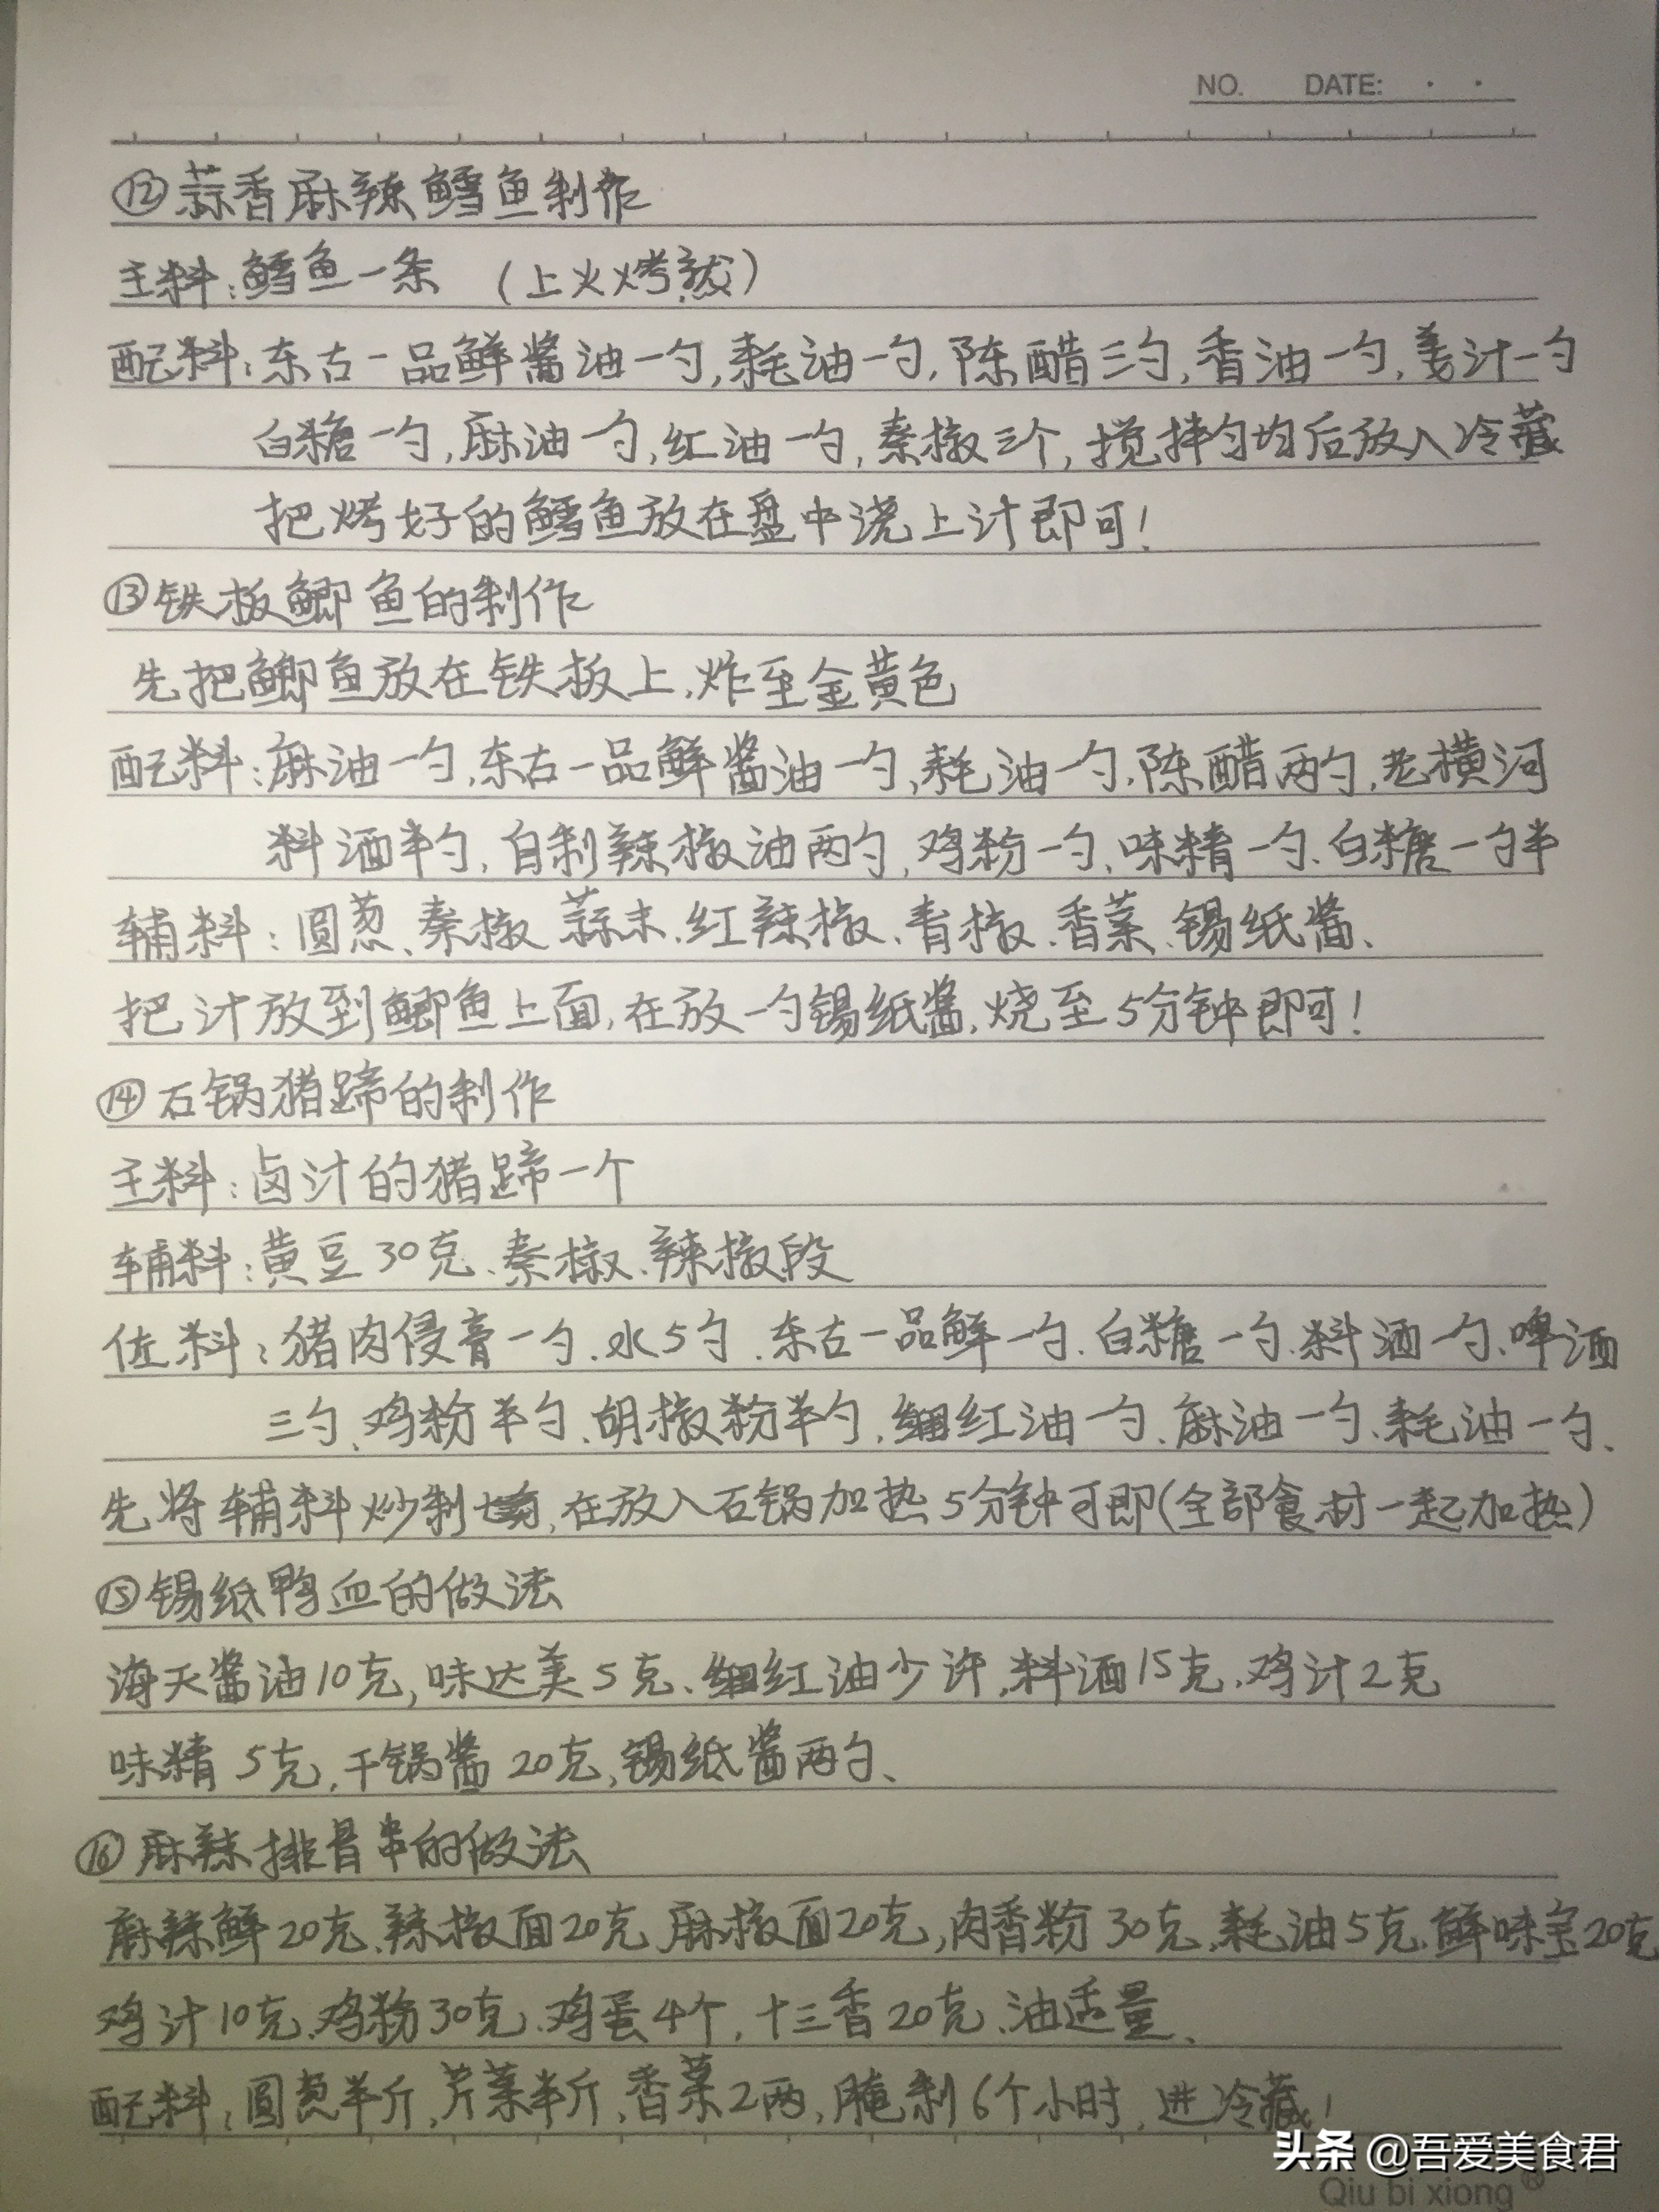 NO. DATE: · ·
⑫蒜香麻辣鳕鱼制作
主料:鳕鱼一条 (上火烤熟)
配料:东古一品鲜酱油一勺,耗油一勺,陈醋三勺,香油一勺,姜汁一勺
白糖一勺,麻油一勺,红油一勺,秦椒三个,搅拌匀均后放入冷藏
把烤好的鳕鱼放在盘中浇上汁即可!
⑬铁板鲫鱼的制作
先把鲫鱼放在铁板上,炸至金黄色
配料:麻油一勺,东古一品鲜酱油一勺,耗油一勺,陈醋两勺,老横河
料酒半勺,自制辣椒油两勺,鸡粉一勺、味精一勺、白糖一勺半
辅料:圆葱、秦椒、蒜末、红辣椒、青椒、香菜、锡纸酱、
把汁放到鲫鱼上面,在放一勺锡纸酱,烧至5分钟即可!
⑭石锅猪蹄的制作
主料:卤汁的猪蹄一个
辅料:黄豆30克、秦椒、辣椒段
佐料:猪肉侵膏一勺、水5勺、东古一品鲜一勺、白糖一勺、料酒一勺、啤酒
三勺、鸡粉半勺、胡椒粉半勺、红油一勺、麻油一勺、耗油一勺、
先将辅料炒制,在放入石锅加热5分钟可即(全部食材一起加热)
⑮锡纸鸭血的做法
海天酱油10克,味达美5克、红油少许,料酒15克、鸡汁2克
味精5克,干锅酱20克,锡纸酱两勺、
⑯麻辣排骨串的做法
麻辣鲜20克、辣椒面20克、麻椒面20克,肉香粉30克、耗油5克、鲜味宝20克
鸡汁10克、鸡粉30克、鸡蛋4个,十三香20克、油适量、
配料:圆葱半斤,芹菜半斤,香菜2两,腌制6个小时,进冷藏!
头条 @吾爱美食君
Qiu bi xiong®